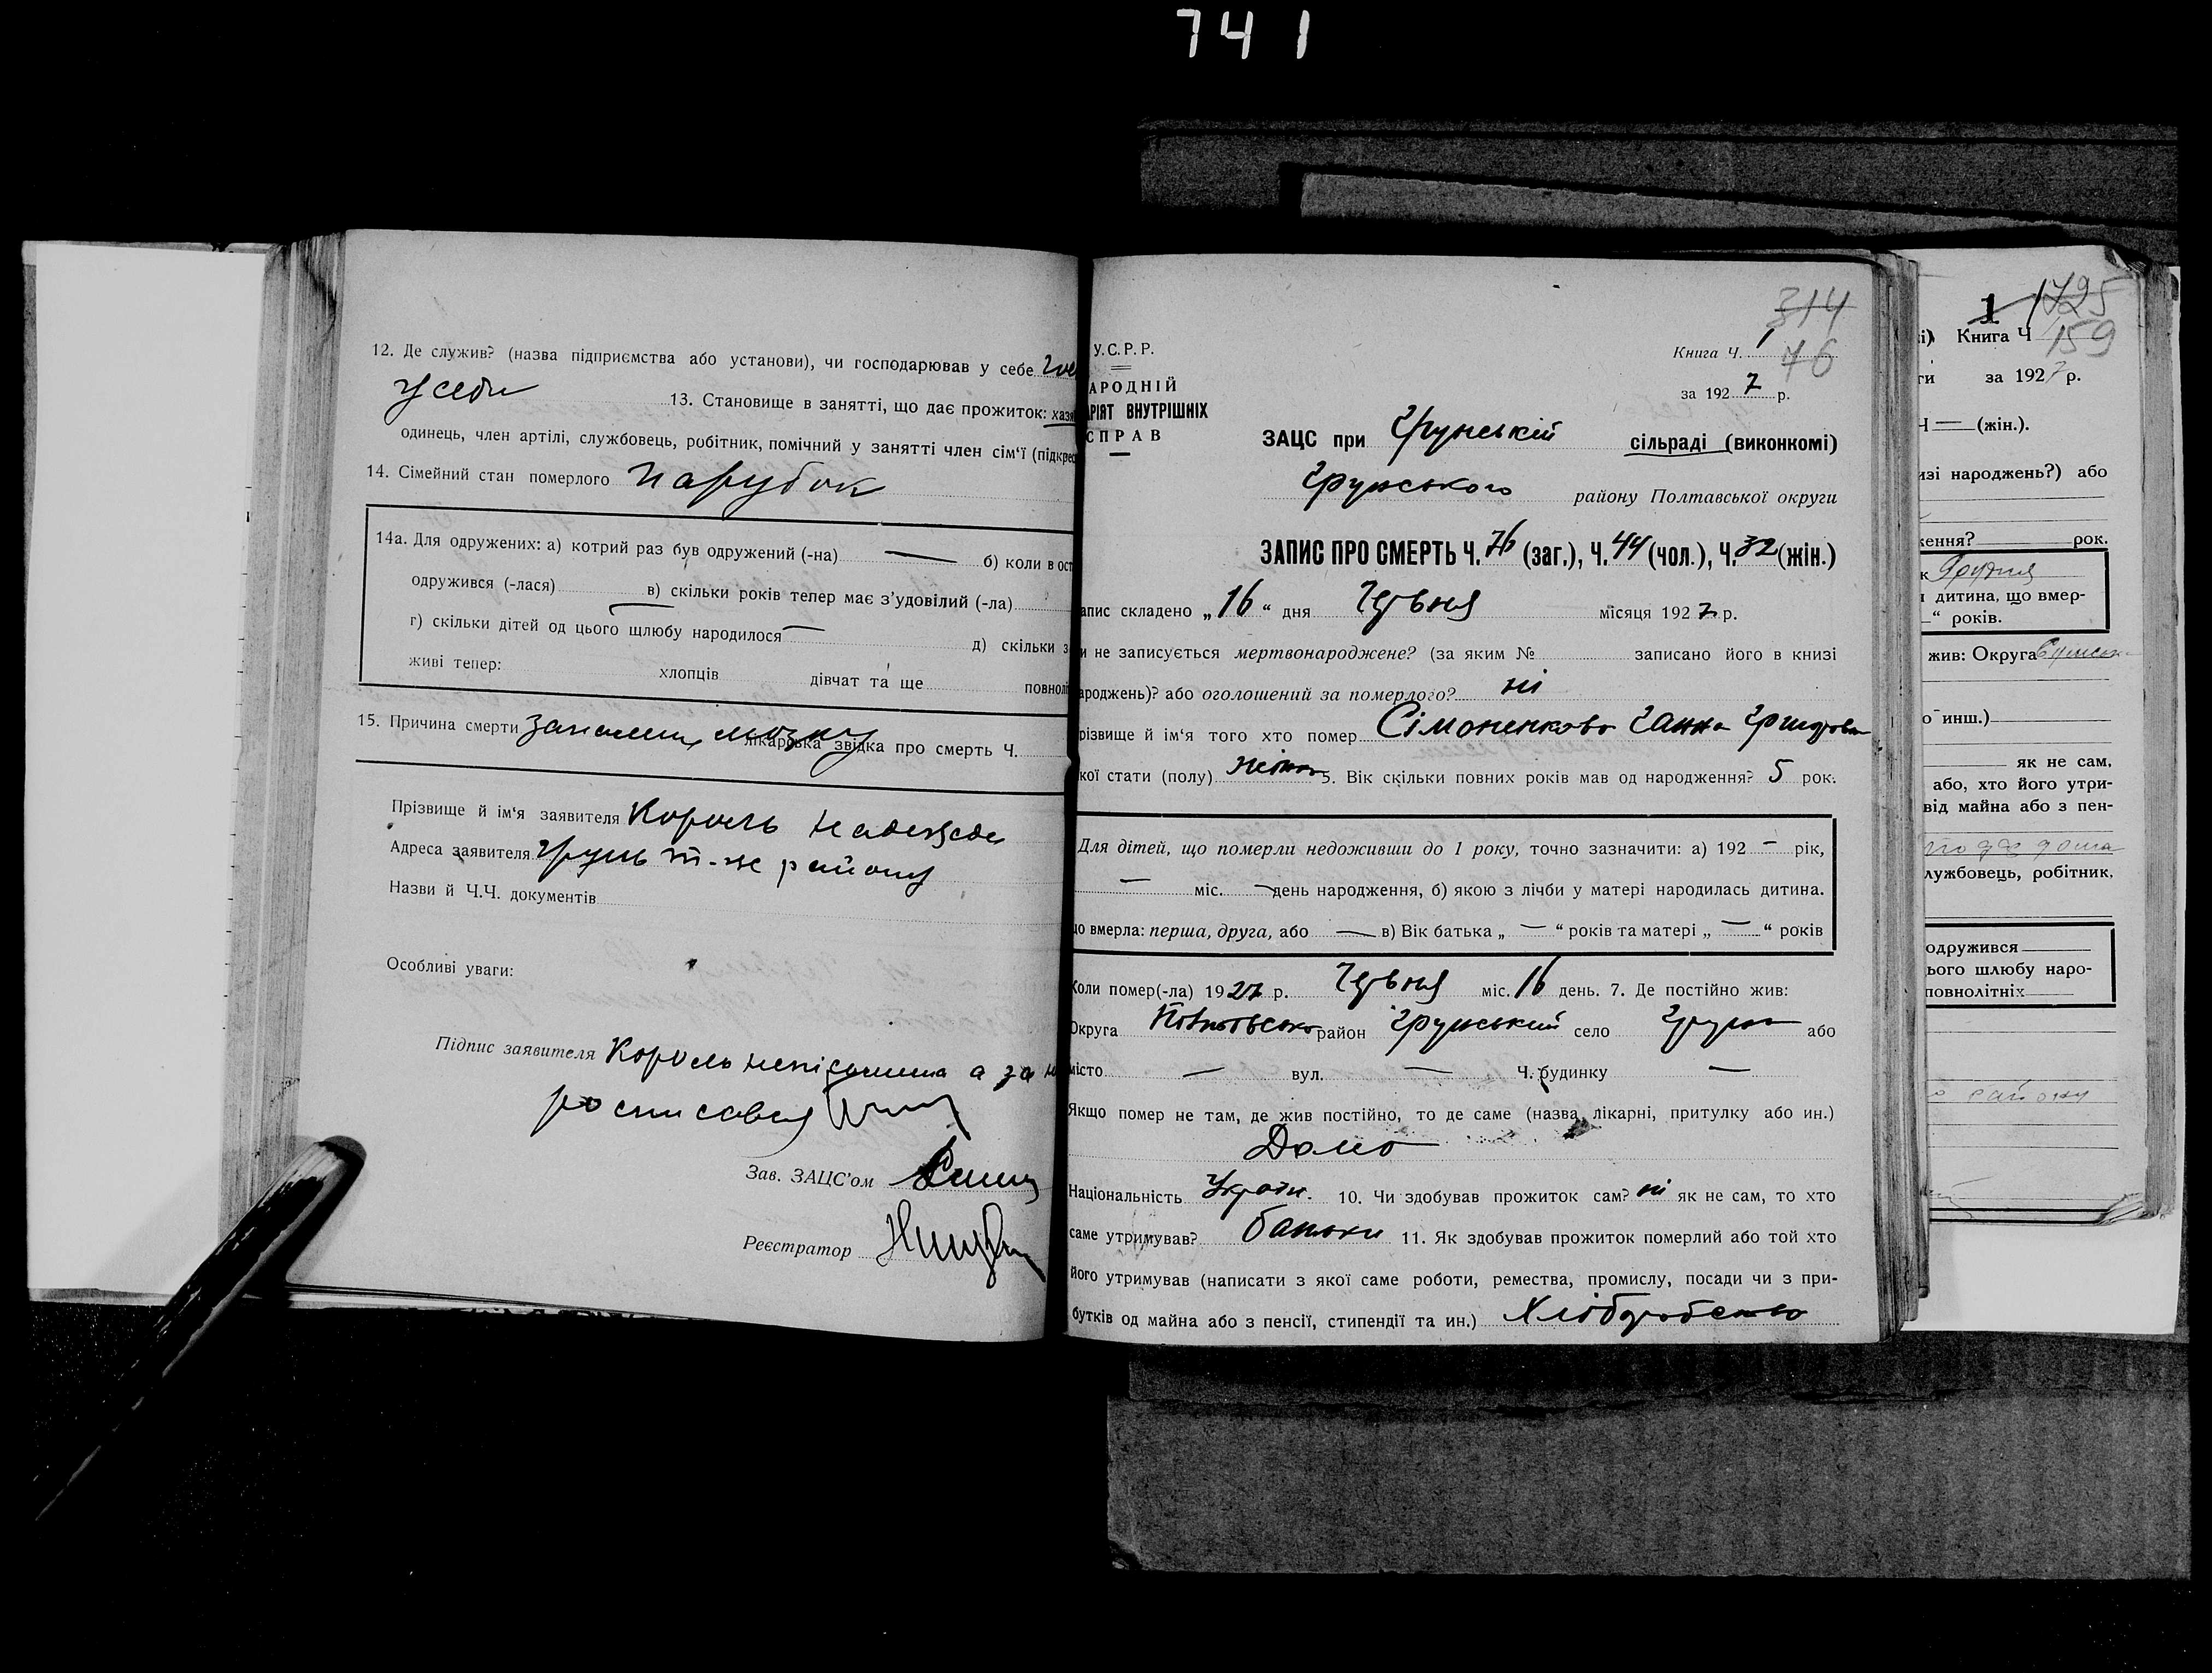 741
12. Де служив? (назва підприємства або установи), чи господарював у себе
у себе 13. Становище в занятті, що дає прожиток: хазя
одинець, член артілі, службовець, робітник, помічний у занятті член сім'ї (підкрес
14. Сімейний стан померлого парубок
14а. Для одружених: а) котрий раз був одружений (-на) — б) коли в ост
одружився (-лася) — в) скільки років тепер має з'удовілий (-ла)
г) скільки дітей од цього шлюбу народилося — д) скільки з
живі тепер: хлопців дівчат та ще повнолі
15. Причина смерти запалення мозку лікарська звідка про смерть Ч.
Прізвище й ім'я заявителя Король
Адреса заявителя Грунь т-ж району
Назви й Ч.Ч. документів
Особливі уваги:
Підпис заявителя Король а за н
росписався
Зав. ЗАЦС'ом
Реєстратор
314
У.С.Р.Р.
Книга Ч. 1
76
АРОДНІЙ
за 1927 р.
РІЯТ ВНУТРІШНІХ
СПРАВ
ЗАЦС при Грунській сільраді (виконкомі)
Грунського району Полтавської округи
ЗАПИС ПРО СМЕРТЬ Ч. 76 (заг.), Ч. 44 (чол.), Ч. 32 (жін.)
апис складено „16“ дня Червня місяця 1927 р.
и не записується мертвонароджене? (за яким № записано його в книзі
ароджень)? або оголошений за померлого? ні
різвище й ім'я того хто помер Сімоненкова Ганна
кої стати (полу) 5. Вік скільки повних років мав од народження? 5 рок.
Для дітей, що померли недоживши до 1 року, точно зазначити: а) 192 — рік,
— міс. — день народження, б) якою з лічби у матері народилась дитина.
що вмерла: перша, друга, або — в) Вік батька „ — “ років та матері „ — “ років
Коли помер(-ла) 1927 р. Червня міс. 16 день. 7. Де постійно жив:
Округа Полтавська район Грунський село Грунь або
місто — вул. — Ч. будинку —
Якщо помер не там, де жив постійно, то де саме (назва лікарні, притулку або ин.)
Дома
Національність Україн. 10. Чи здобував прожиток сам? ні як не сам, то хто
саме утримував? батьки 11. Як здобував прожиток померлий або той хто
його утримував (написати з якої саме роботи, ремества, промислу, посади чи з при-
бутків од майна або з пенсії, стипендії та ин.) Хліборобство
1 1725
і) Книга Ч 159
ги за 1927 р.
Ч — (жін.).
изі народжень?) або
ження? рок.
к друга
я дитина, що вмер-
—“ років.
жив: Округа Сумська
о инш.)
як не сам,
або, хто його утри-
від майна або з пен-
лужбовець, робітник,
одружився
ього шлюбу наро-
повнолітніх
району